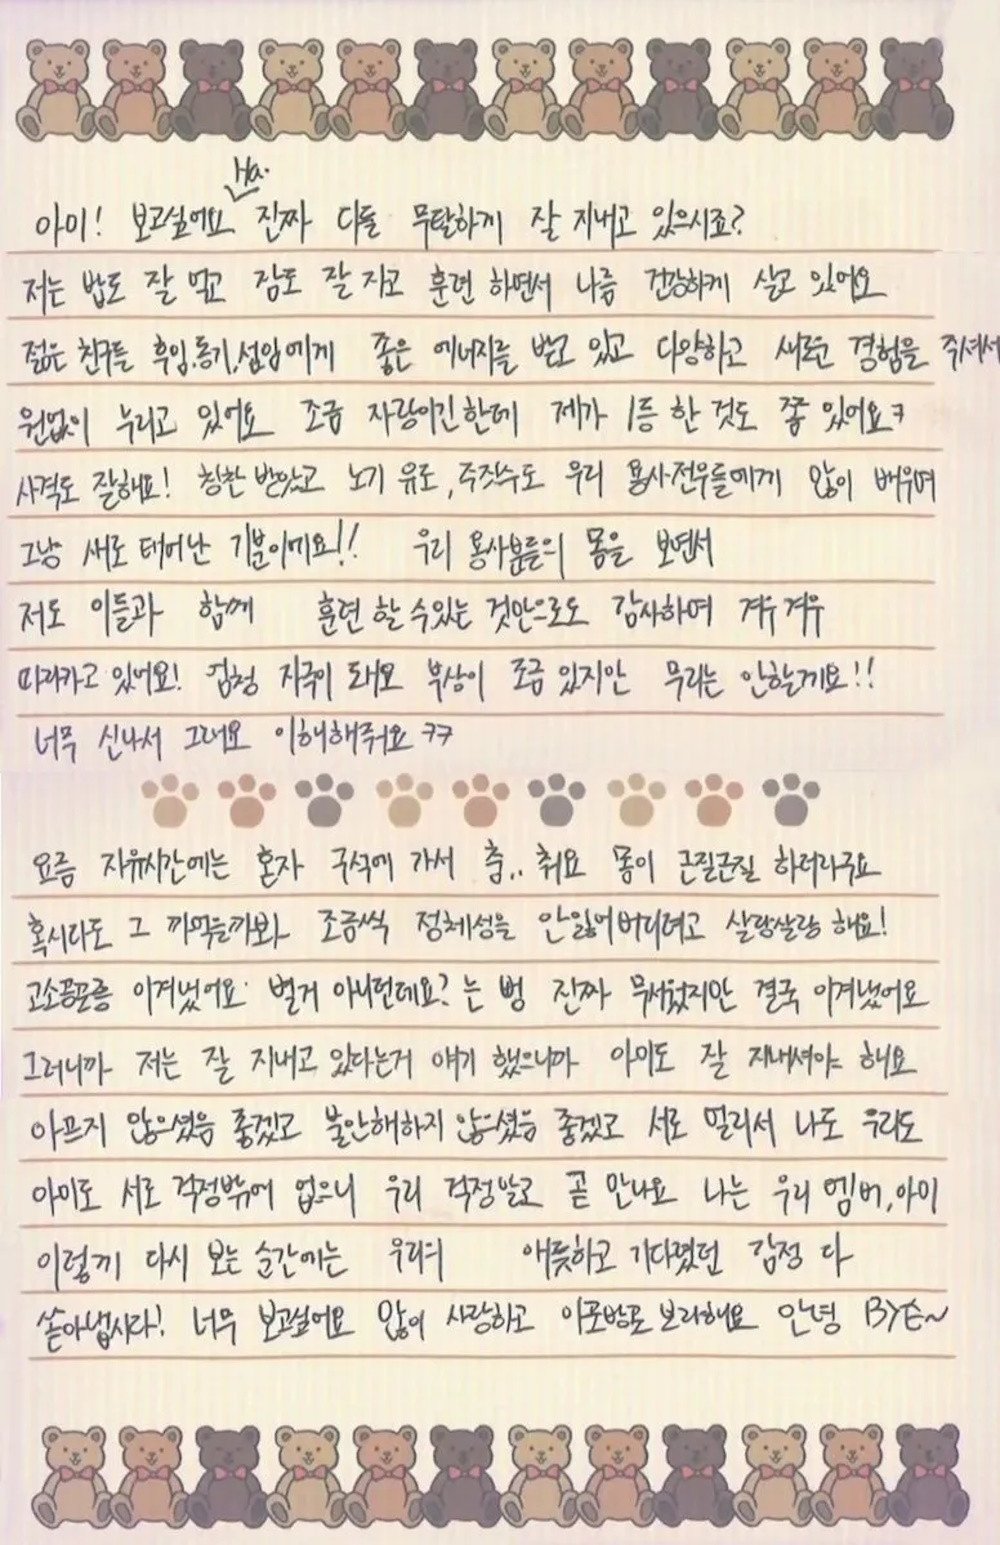 Ha.
아미! 보고싶어요 진짜 다들 무탈하게 잘 지내고 있으시죠?
저는 밥도 잘 먹고 잠도 잘 자고 훈련 하면서 나름 건강하게 살고 있어요
젊은 친구들 후임.동기.선임에게 좋은 에너지를 받고 있고 다양하고 새로운 경험을 주셔서
원없이 누리고 있어요 조금 자랑이긴한데 제가 1등 한 것도 쫌 있어요ㅋ
사격도 잘해요! 칭찬 받았고 노기 유도, 주짓수도 우리 용사·전우들에게 많이 배우며
그냥 새로 태어난 기분이에요!! 우리 용사분들의 몸을 보면서
저도 이들과 함께 훈련 할 수 있는 것만으로도 감사하며 겨우겨우
따라가고 있어요! 엄청 자극이 돼요 부상이 조금 있지만 무리는 안할께요!!
너무 신나서 그래요 이해해줘요 ㅋㅋ
요즘 자유시간에는 혼자 구석에 가서 춤.. 춰요 몸이 근질근질 하더라구요
혹시라도 그 까먹을까봐 조금씩 정체성을 안잃어버리려고 살랑살랑 해요!
고소공포증 이겨냈어요 별거 아니던데요? 는 뻥 진짜 무서웠지만 결국 이겨냈어요
그러니까 저는 잘 지내고 있다는거 얘기 했으니까 아미도 잘 지내셔야 해요
아프지 않으셨음 좋겠고 불안해하지 않으셨음 좋겠고 서로 멀리서 나도 우리도
아미도 서로 걱정밖에 없으니 우리 걱정말고 곧 만나요 나는 우리 멤버, 아미
이렇게 다시 보는 순간에는 우리의 애틋하고 기다렸던 감정 다
쏟아냅시다! 너무 보고싶어요 많이 사랑하고 이모방로 보라해요 안녕 BYE~